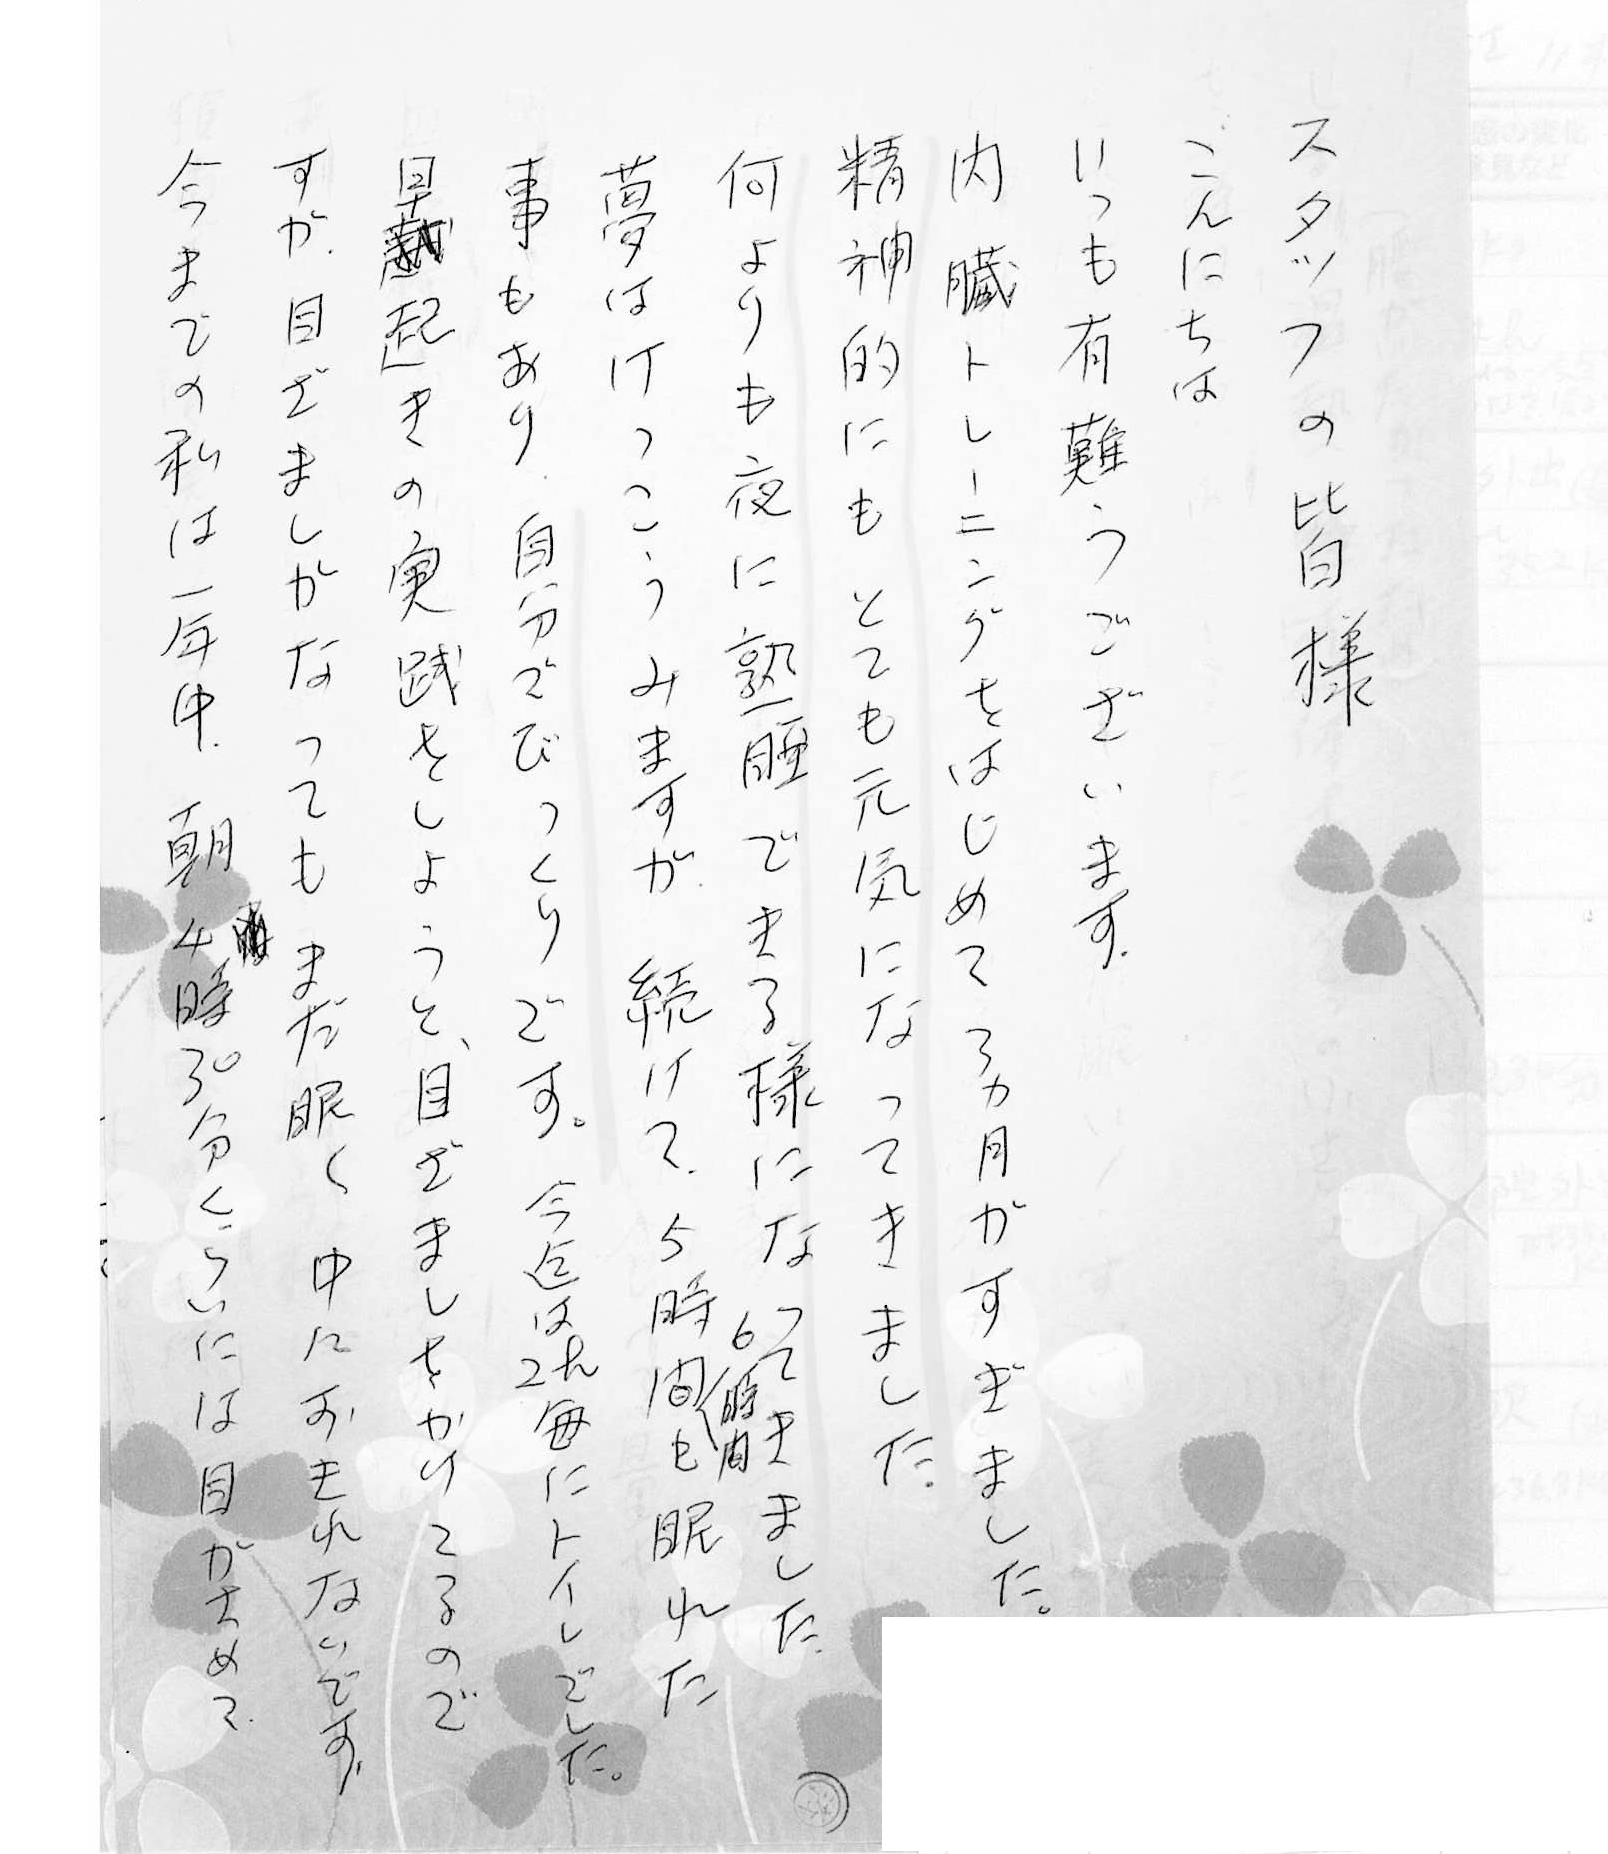 スタッフの皆様
こんにちは
いつも有難うございます.
内臓トレーニングをはじめて3ヵ月がすぎました。
精神的にもとても元気になってきました.
何よりも夜に熟睡できる様になってきました.
夢はけっこうみますが.続けて.5時間(6時間)も眠れた
事もあり.自分でびっくりです。今迄は2h毎にトイレでした。
早起きの実践をしようと、目ざましをかけてるので
すが.目ざましがなってもまだ眠く中におきれないです.
今までの私は一年中.朝4時30分くらいには目がさめて.